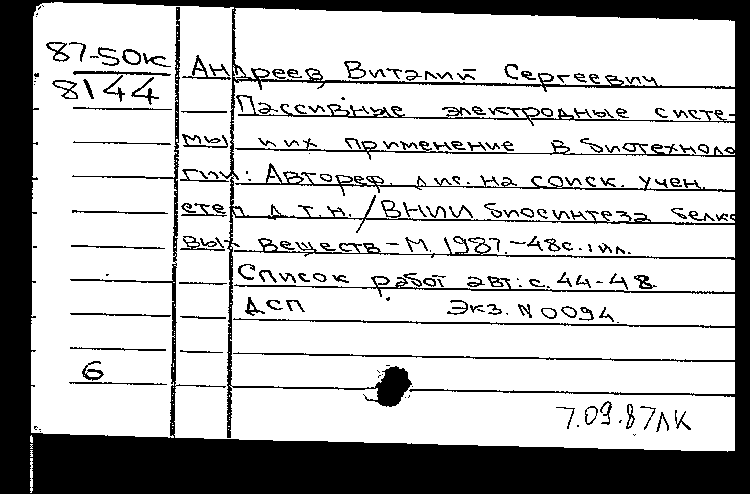 87-50к
8144
Андреев, Виталий Сергеевич
Пассивные электродные систе-
мы и их применение в биотехноло
гии: Автореф. дис. на соиск. учен.
степ. д.т.н. / ВНИИ биосинтеза белко
вых веществ - М, 1987. - 48с.: ил.
Список работ авт.: с. 44-48
ДСП Экз. N 0094
6
7.09.87ЛК